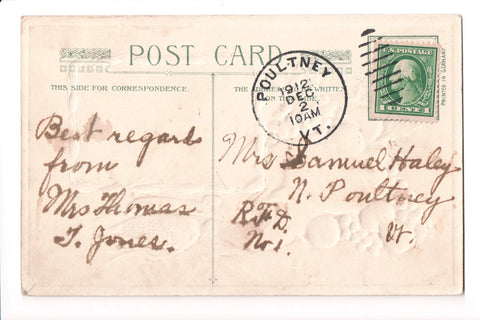 POST CARD
THIS SIDE FOR CORRESPONDENCE
THE ADDRESS WRITTEN
ON
POULTNEY
1912
DEC
2
10AM
VT.
U.S. POSTAGE
1 CENT 1
PRINTED IN GERMANY
Best regards
from
Mrs Thomas
T. Jones.
Mrs Samuel Haley
N. Poultney
R.F.D.
No 1.
Vt.